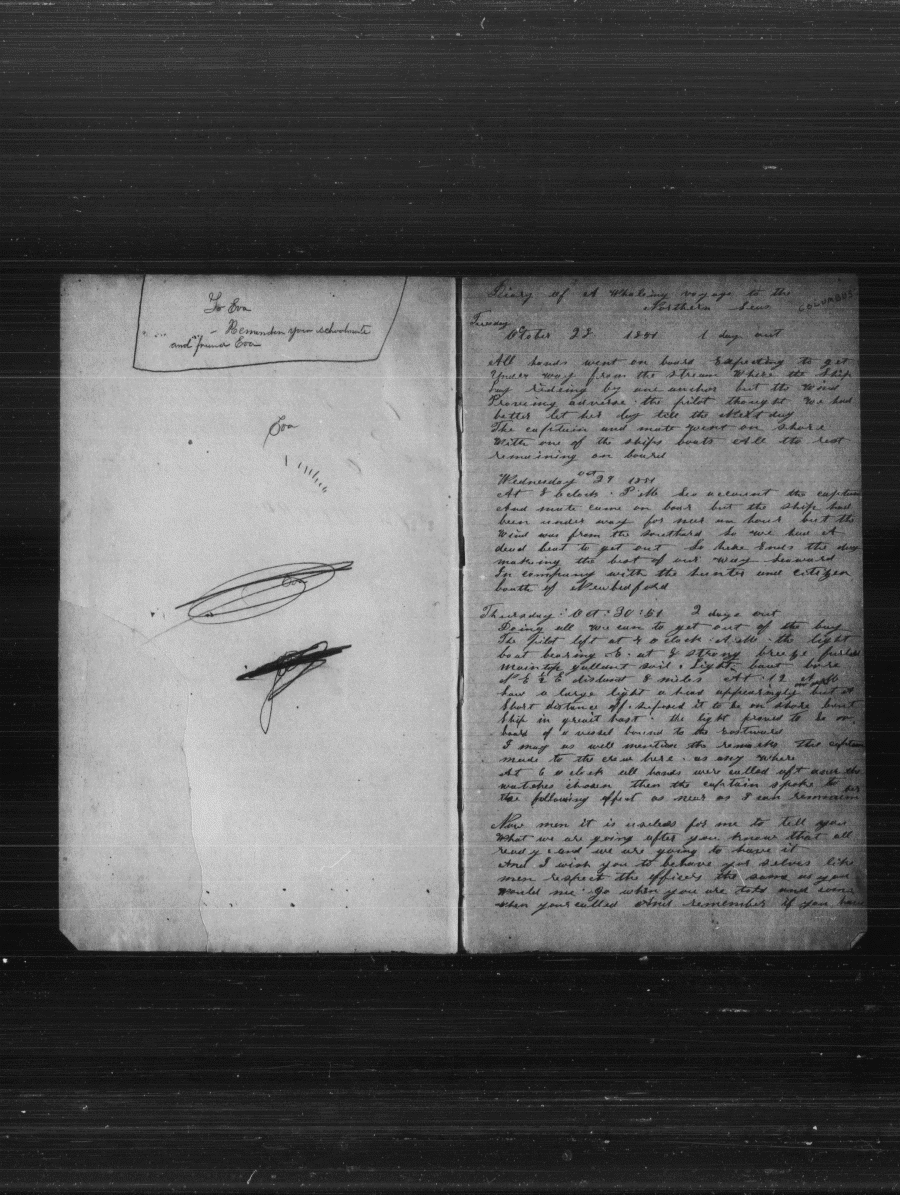 To Eva
- Remember your schoolmate
and friend Eva
Eva
Eva
Diary of A Whaleing voyage to the
Northern Seas
COLUMBUS
Tuesday
October 28 1851 1 day out
All hands went on board Expecting to get
Under way from the stream Where the Ship
Lay rideing by one anchor but the Wind
Proveing adverse the pilot thought We had
better let her lay till the Next day
The captain and mate went on shore
With one of the ships boats All the rest
remaining on board
Wednesday Oct 29 1851
At 8 oclock P M the captain
And mate came on boar but the ship had
been under way for near an hour but the
Wind was from the southard So we had A
dead beat to get out So here Ends the day
making the best of our way Seaward
In company with the hunter and citizen
bouth of Newbedford
Thursday : Oct : 30 : 51 2 days out
Doing all we can to get out of the bay
The pilot left at o clock A M the light
boat bearing E. at 8 strong breeze furled
maintop gallant sail. Light boat bore
N E & E distant 8 miles At 12
Saw a large light a head appearingly but A
Short distance off suposed it to be on shore
Ship in the light proved to be on
board of a vessel bound to the Eastward
I may as well mention the remarks the captain
made to the crew here as any where
At 6 o clock all hands were called aft the
watches chosen then the captain spoke to
the following effect as near as I can
Now men it is useless for me to tell you
What we are going after you know that all
ready and we are going to have it
And I wish you to behave your selves like
men respect the officers the same as you
Would me go when you are told and come
when your called And remember if you have